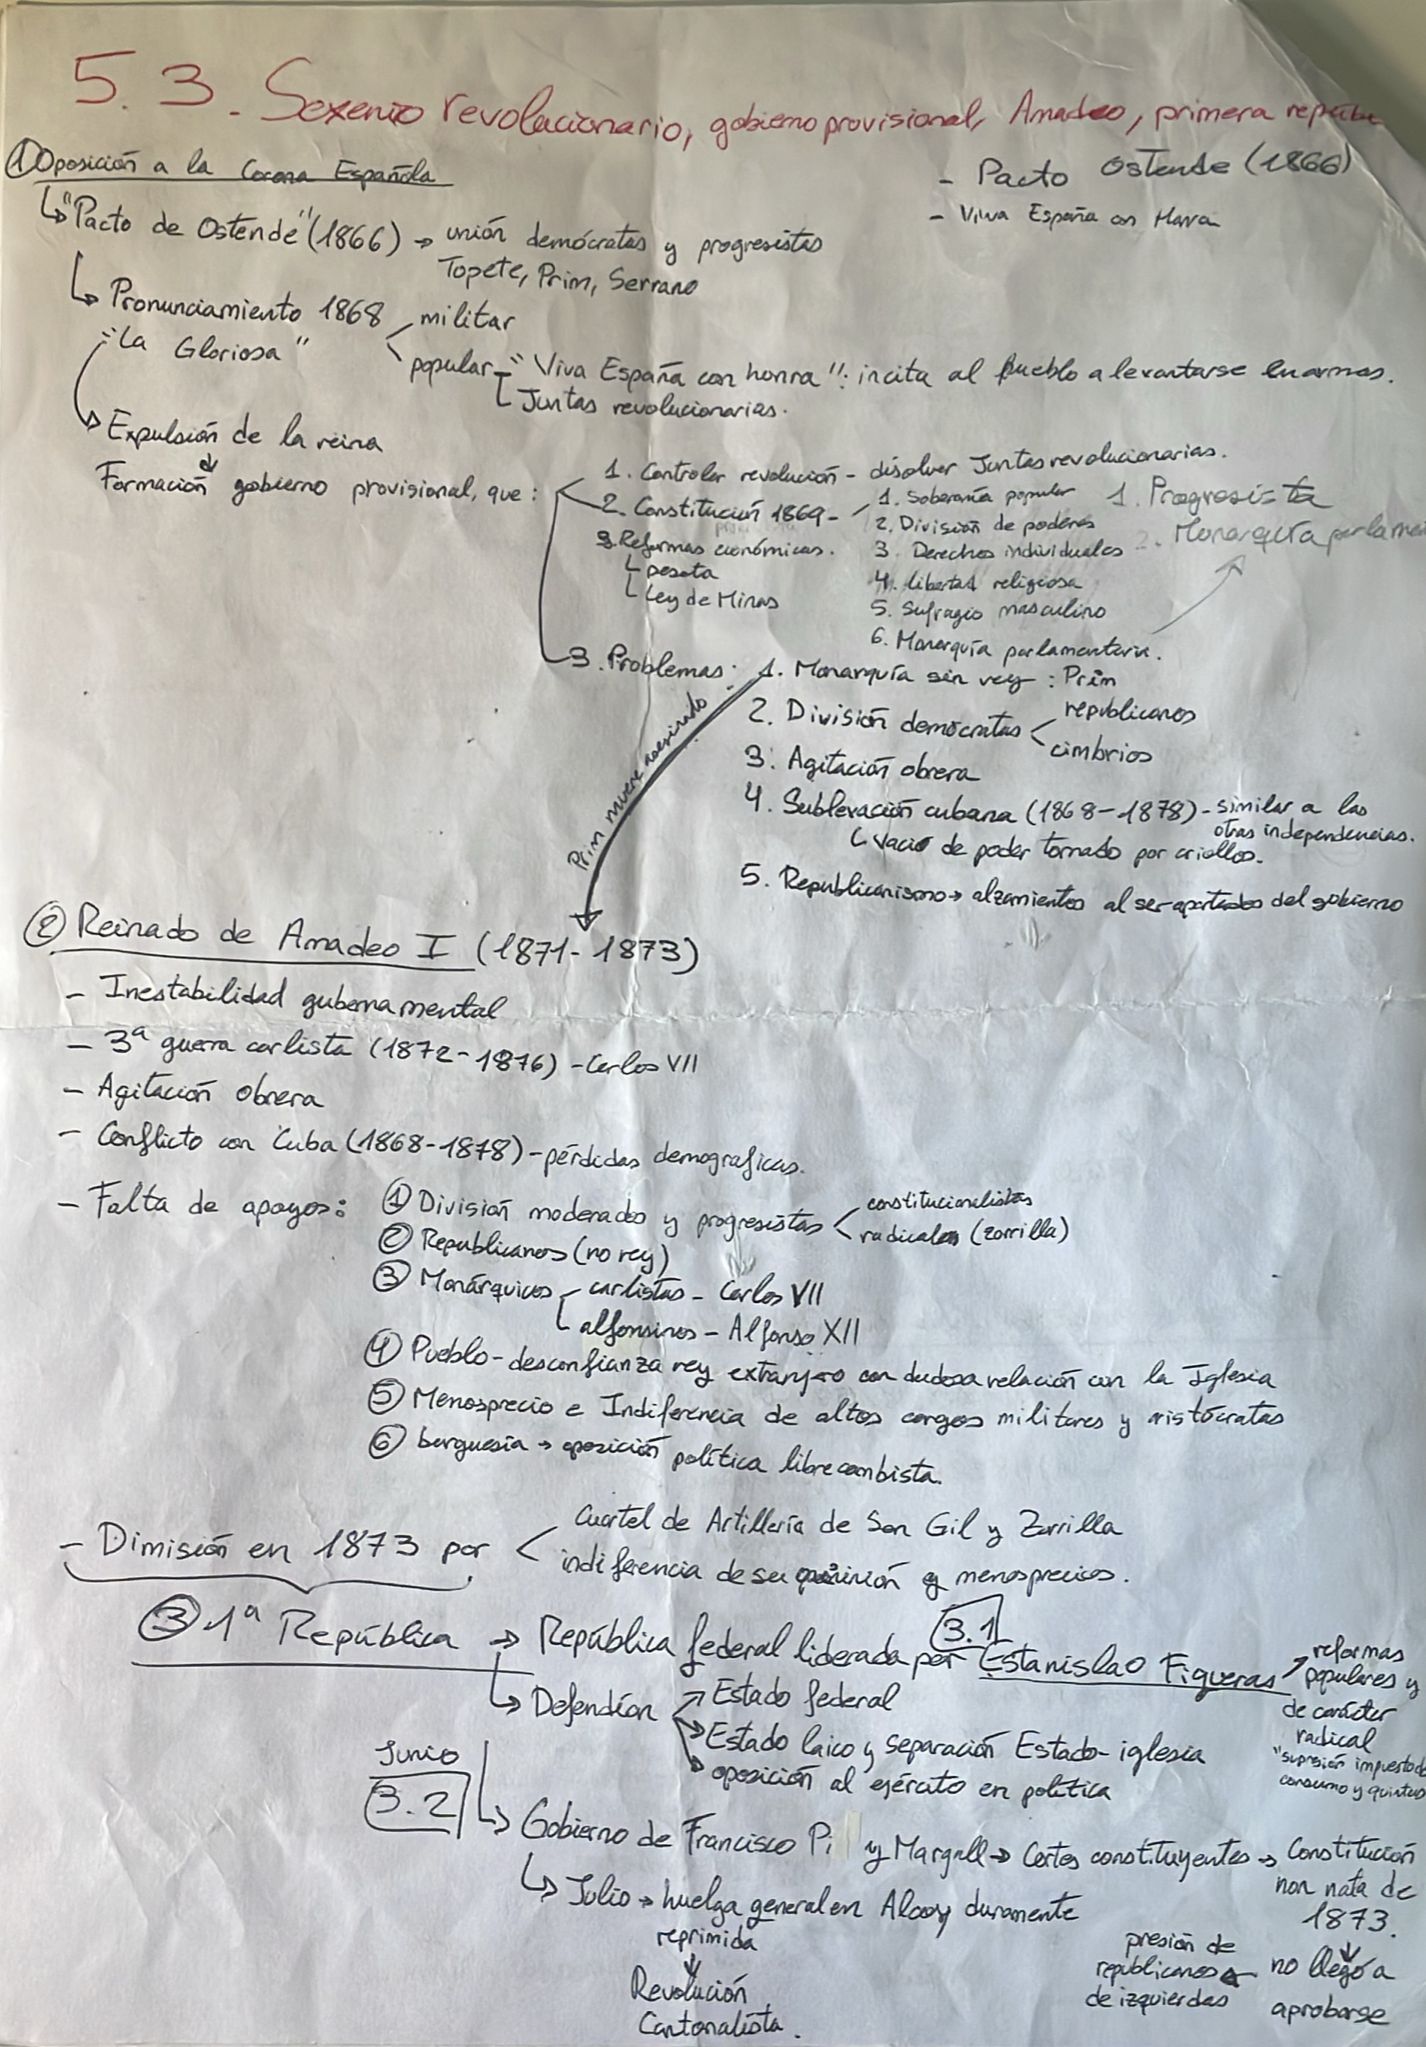 5.3. Sexenio revolucionario, gobierno provisional, Amadeo, primera
① Oposición a la Corona Española
- Pacto Ostende (1866)
- Viva España con
↳ "Pacto de Ostende" (1866) → unión demócratas y progresistas
Topete, Prim, Serrano
↳ Pronunciamiento 1868
"La Gloriosa"
militar
popular - "Viva España con honra": incita al pueblo a levantarse en armas.
Juntas revolucionarias.
→ Expulsión de la reina
Formación gobierno provisional, que:
1. Controlar revolución - disolver Juntas revolucionarias.
2. Constitución 1869 -
1. Soberanía popular
2. División de poderes
3. Derechos individuales
4. libertad religiosa
5. Sufragio masculino
6. Monarquía parlamentaria.
1. Progresista
2. Monarquía
3. Reformas económicas.
peseta
Ley de Minas
3. Problemas:
1. Monarquía sin rey: Prim
2. División demócratas < republicanos
cimbrios
3. Agitación obrera
4. Sublevación cubana (1868-1878) - similar a las
otras independencias.
↳ Vacío de poder tomado por criollos.
5. Republicanismo → alzamientos al ser apartados del gobierno
Prim muere asesinado
② Reinado de Amadeo I (1871-1873)
- Inestabilidad gubernamental
- 3ª guerra carlista (1872-1876) - Carlos VII
- Agitación obrera
- Conflicto con Cuba (1868-1878) - pérdidas demograficas.
- Falta de apoyos:
① División moderados y progresistas < constitucionalistas
radicales (Zorrilla)
② Republicanos (no rey)
③ Monárquicos
carlistas - Carlos VII
alfonsinos - Alfonso XII
④ Pueblo - desconfianza rey extranjero con dudosa relación con la Iglesia
⑤ Menosprecio e Indiferencia de altos cargos militares y aristócratas
⑥ burguesía → oposición política librecambista.
- Dimisión en 1873 por <
Cuartel de Artillería de San Gil y Zorrilla
indiferencia de su opinión y menosprecios.
③ 1ª República → República federal liderada por Estanislao Figueras
3.1
reformas
populares y
de carácter
radical
"supresión impuesto de
consumo y quintas
↳ Defendían
Estado federal
Estado laico y separación Estado-iglesia
oposición al ejército en política
Junio
3.2
↳ Gobierno de Francisco Pi y Margall → Cortes constituyentes → Constitución
non nata de
1873.
↓
no llegó a
aprobarse
presión de
republicanos
de izquierdas
↳ Julio → huelga general en Alcoy duramente
reprimida
↓
Revolución
Cantonalista.